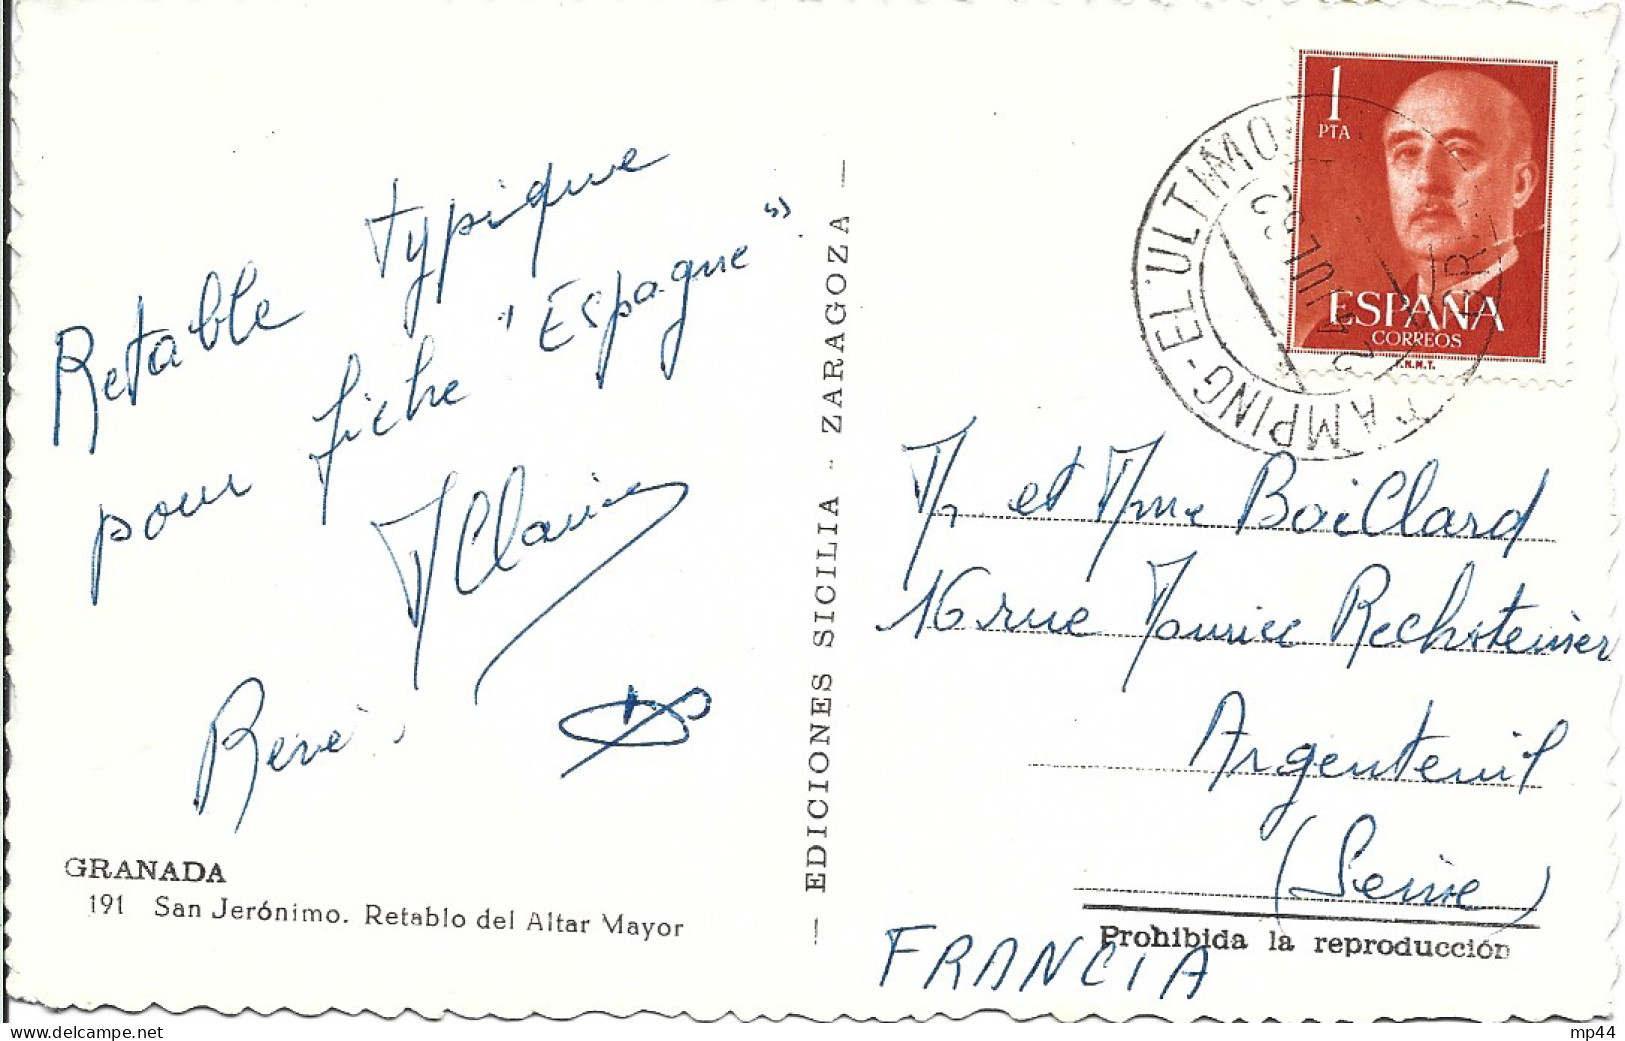 Retable typique
pour fiche "Espagne"
René
GRANADA
191 San Jerónimo. Retablo del Altar Mayor
— EDICIONES SICILIA - ZARAGOZA —
1
PTA
ESPAÑA
CORREOS
F.N.M.T.
CAMPING-EL ULTIMO
24 JUL
Mr et Mme Boillard
16 rue Maurice Rechsteiner
Argenteuil
(Seine)
FRANCIA
Prohibida la reproducción
www.delcampe.net
mp44